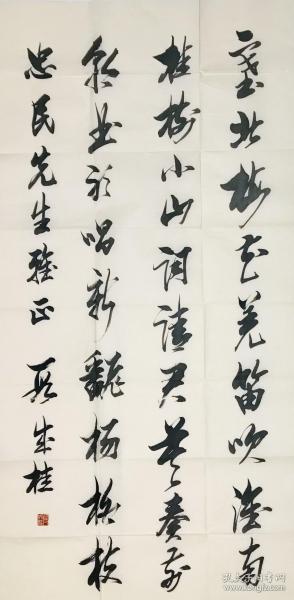 塞北梅花羌笛吹淮南
桂树小山词请君莫奏前
朝曲听唱新翻杨柳枝
忠民先生雅正 段成桂